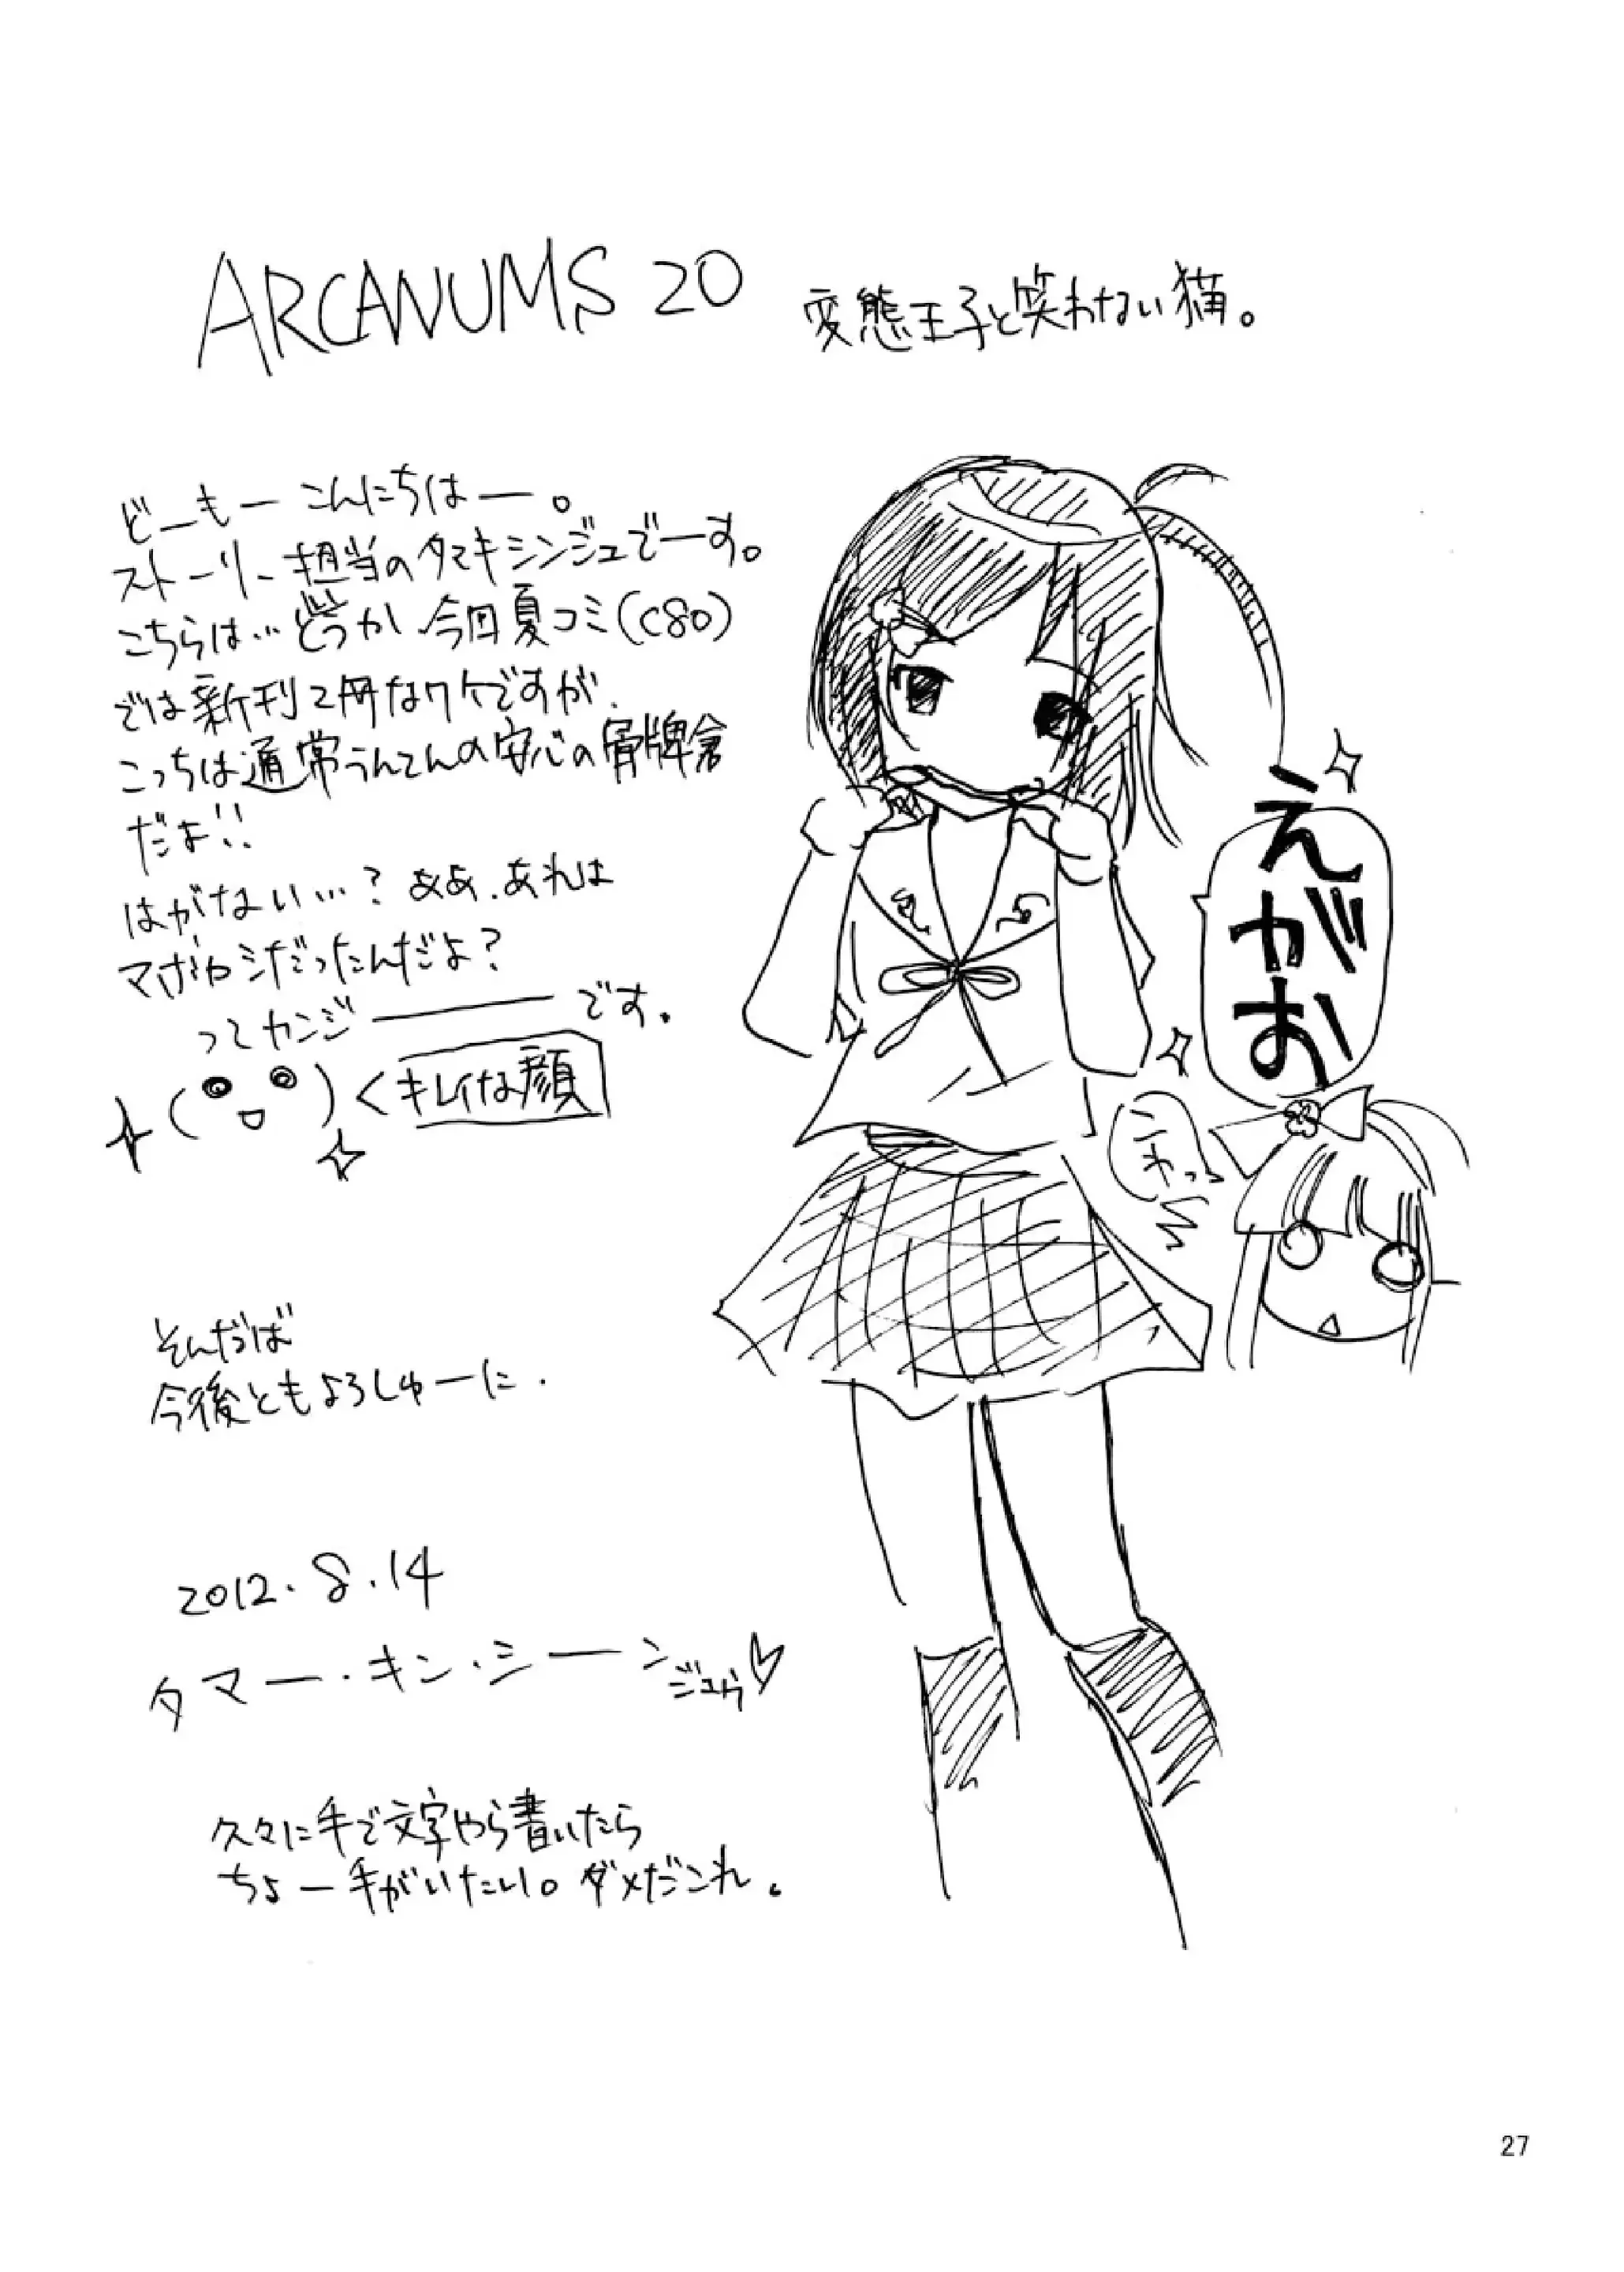 ARCANUMS 20 変態王子と笑わない猫。
どーもー こんにちはー。
ストーリー担当のタマキシンジュでーす。
こちらは…どうか 今回夏コミ(C80)
では新刊2冊なワケですが、
こっちは通常うんてんの安心の骨牌倉
だよ!!
はがない…? ああ、あれは
マボロシだったんだよ?
ってカンジ――――です。
キレイな顔
えがお
こわっ
そんだば
今後ともよろしゅーに.
2012.8.14
タマー・キン・シーン
ジュウ
久々に手で文字やら書いたら
ちょー手がいたい。ダメだこれ。
27